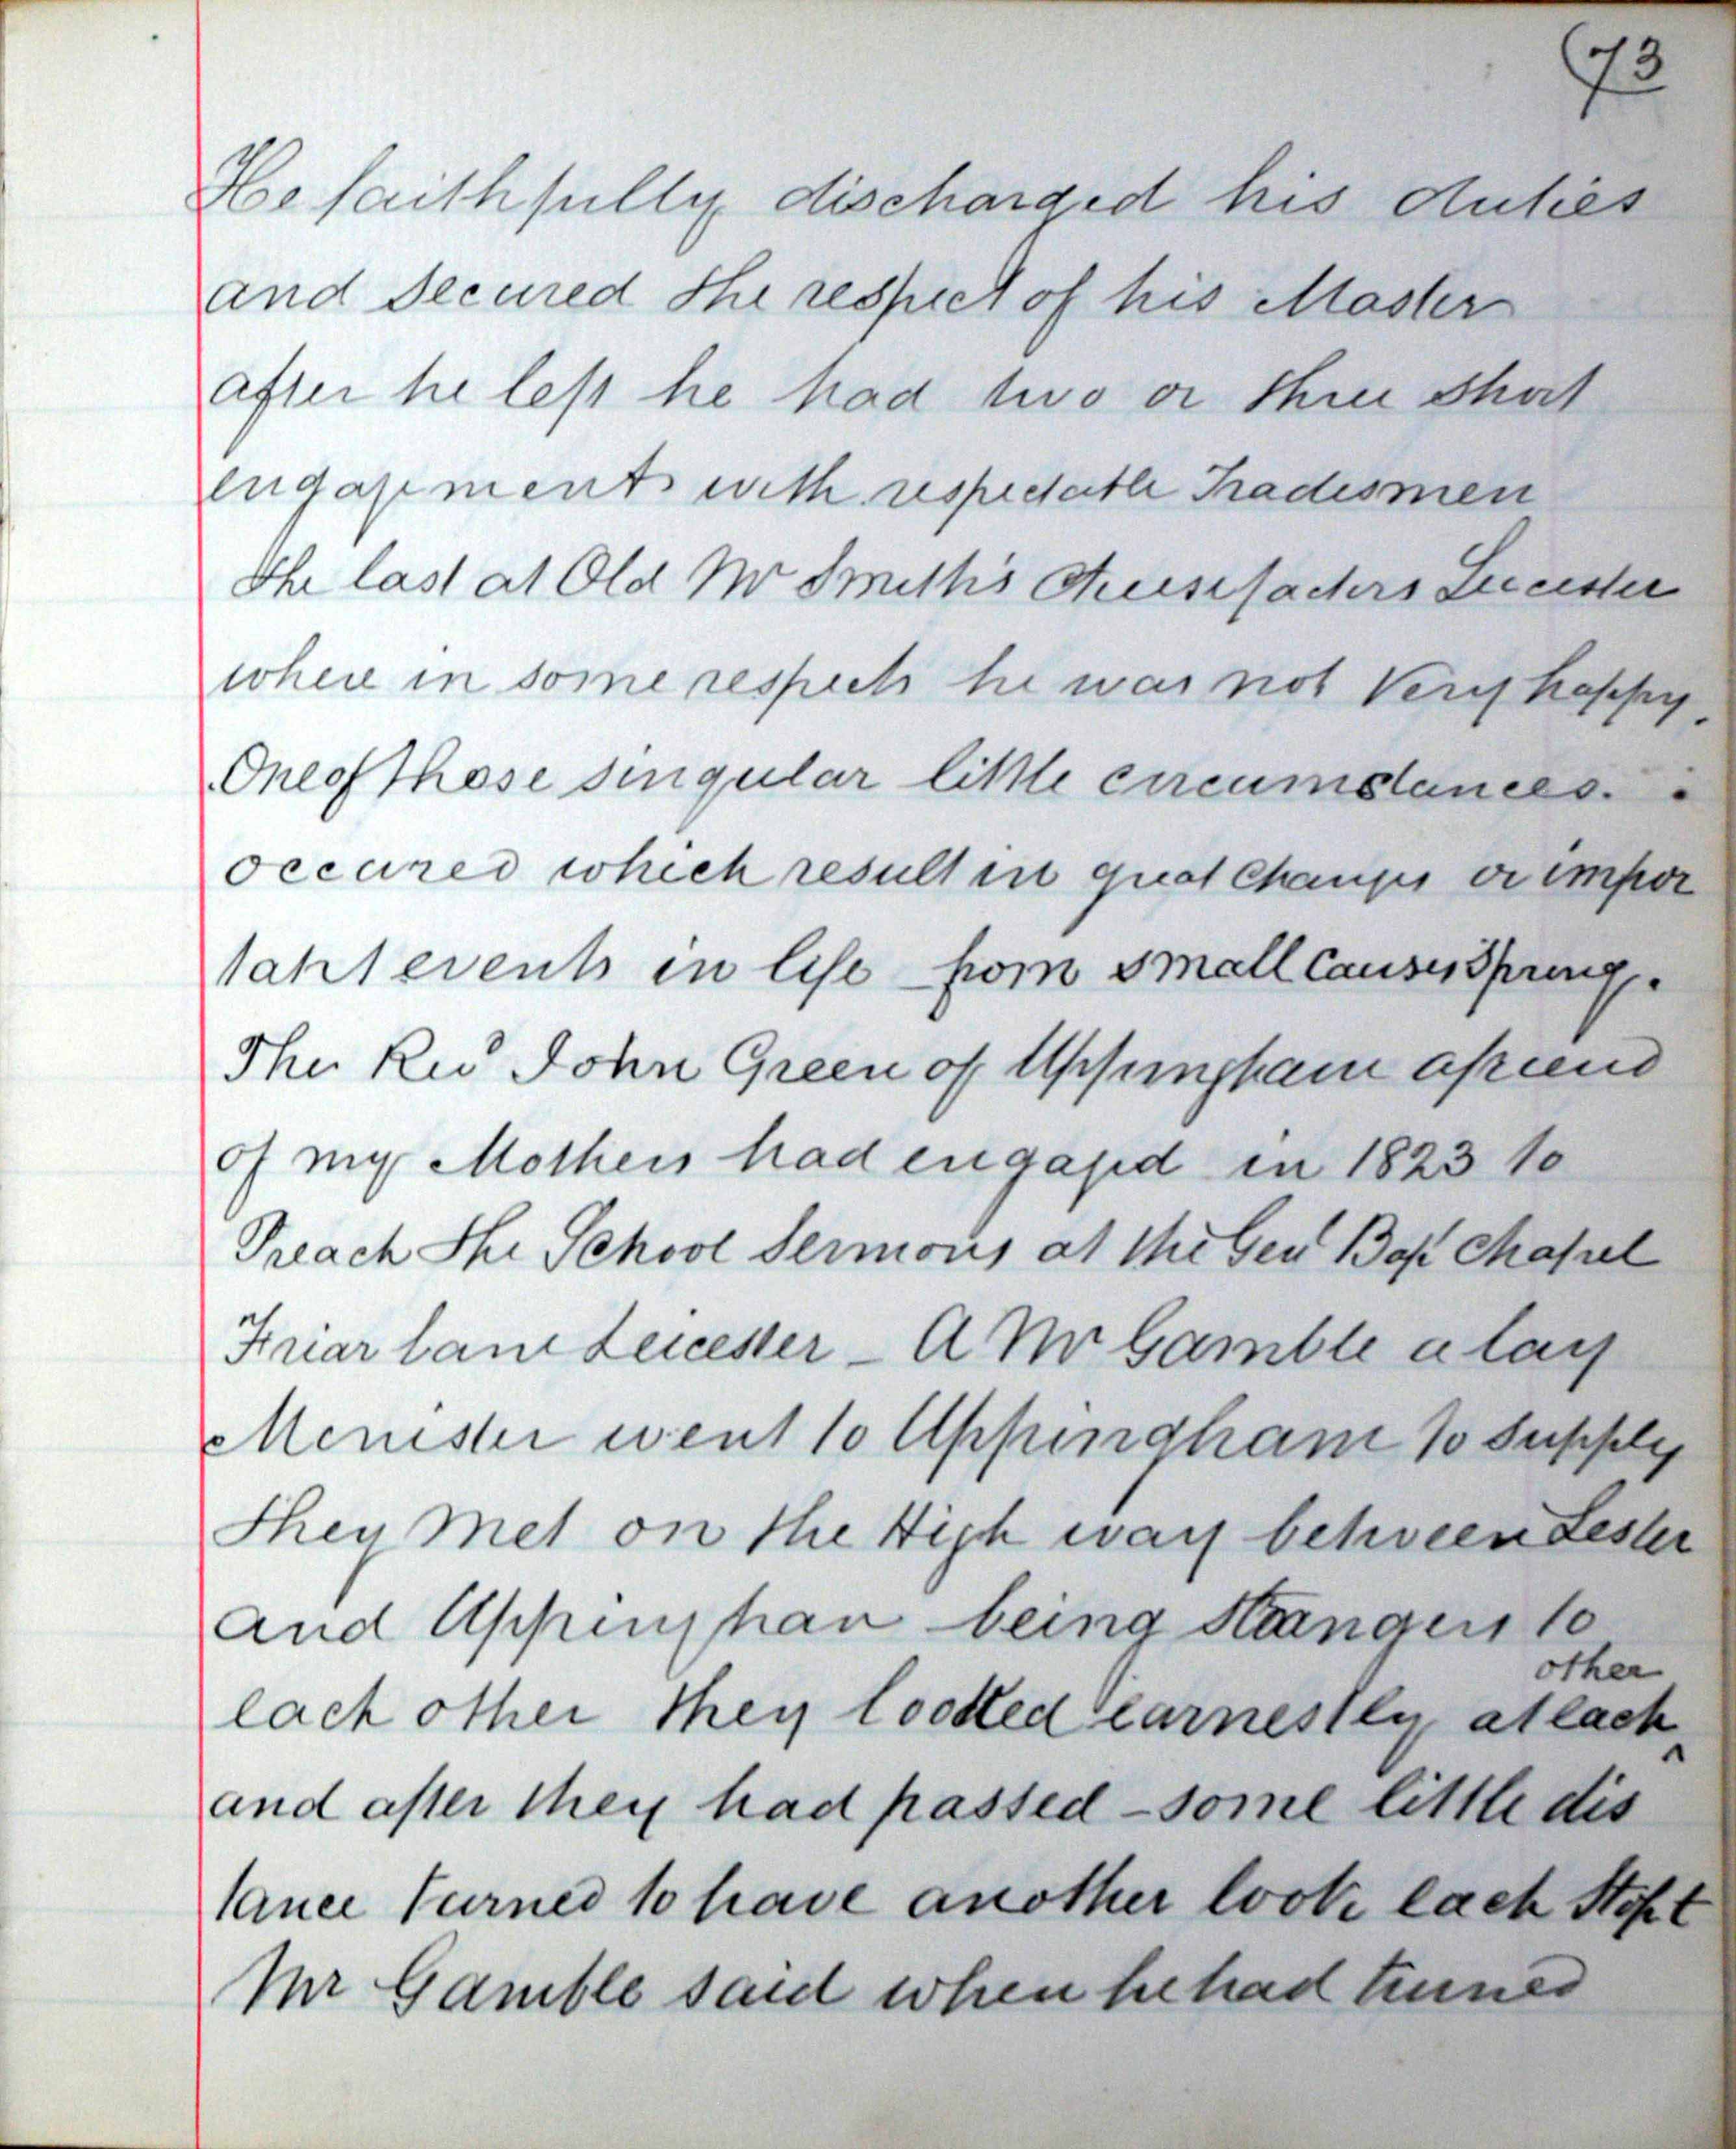 (73
He faithfully discharged his duties
and secured the respect of his Master
after he left he had two or three short
engagements with respectable Tradesmen
the last at Old Mr Smith's Cheesefactors Leicester
where in some respects he was not Very happy.
One of those singular little circumstances.
occured which result in great Changes or impor
tant events in life - from small Causes Spring.
The Revd John Green of Uppingham a friend
of my Mothers had engaged in 1823 to
Preach the School Sermons at the Genl Bapt Chapel
Friar lane Leicester - A Mr Gamble a lay
Menister went to Uppingham to supply
they met on the High way between Lester
and Uppinghan being strangers to
each other they looked earnestly at each other
and after they had passed - some little dis
tance turned to have another look each Stopt
Mr Gamble said when he had turned